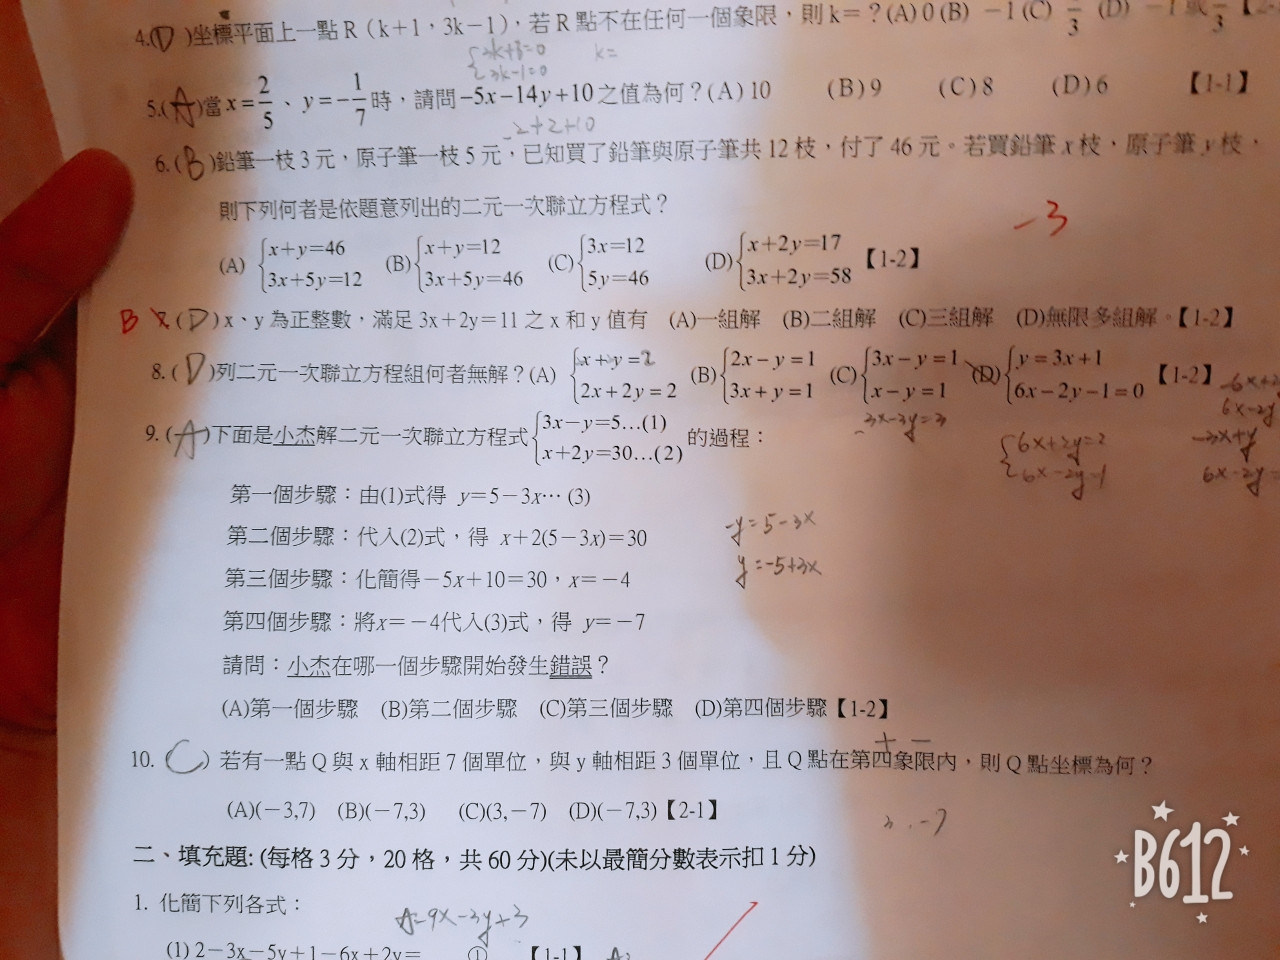 4.(D)坐標平面上一點 R(k+1,3k-1),若 R 點不在任何一個象限,則 k=?(A) 0 (B) -1 (C) 3 (D) -1 或 3
3k-1=0 k=
5.(A)當 x=2/5、y=-1/7 時,請問 -5x-14y+10 之值為何?(A) 10 (B) 9 (C) 8 (D) 6 【1-1】
-2+2+10
6.(B)鉛筆一枝 3 元,原子筆一枝 5 元,已知買了鉛筆與原子筆共 12 枝,付了 46 元。若買鉛筆 x 枝,原子筆 y 枝,
則下列何者是依題意列出的二元一次聯立方程式?
-3
(A) {x+y=46 (B) {x+y=12 (C) {3x=12 (D) {x+2y=17 【1-2】
3x+5y=12 3x+5y=46 5y=46 3x+2y=58
B 7.(D) x、y 為正整數,滿足 3x+2y=11 之 x 和 y 值有 (A)一組解 (B)二組解 (C)三組解 (D)無限多組解。【1-2】
8.(D)列二元一次聯立方程組何者無解?(A) {x+y=2 (B) {2x-y=1 (C) {3x-y=1 (D) {y=3x+1 【1-2】
2x+2y=2 3x+y=1 x-y=1 6x-2y-1=0
3x-3y=3
9.(A)下面是小杰解二元一次聯立方程式 {3x-y=5…(1) 的過程:
x+2y=30…(2)
{6x+2y=2 -3x+y
6x-2y-1 6x-2y
第一個步驟:由(1)式得 y=5-3x… (3)
-y=5-3x
第二個步驟:代入(2)式,得 x+2(5-3x)=30
y=-5+3x
第三個步驟:化簡得-5x+10=30,x=-4
第四個步驟:將x=-4代入(3)式,得 y=-7
請問:小杰在哪一個步驟開始發生錯誤?
(A)第一個步驟 (B)第二個步驟 (C)第三個步驟 (D)第四個步驟【1-2】
+ -
10. (C) 若有一點 Q 與 x 軸相距 7 個單位,與 y 軸相距 3 個單位,且 Q 點在第四象限內,則 Q 點坐標為何?
(A)(-3,7) (B)(-7,3) (C)(3,-7) (D)(-7,3)【2-1】
3,-7
二、填充題: (每格 3 分,20 格,共 60 分)(未以最簡分數表示扣 1 分)
1. 化簡下列各式:
A=9x-3y+3
(1) 2-3x-5y+1-6x+2y= ① 【1-1】 A:
B612